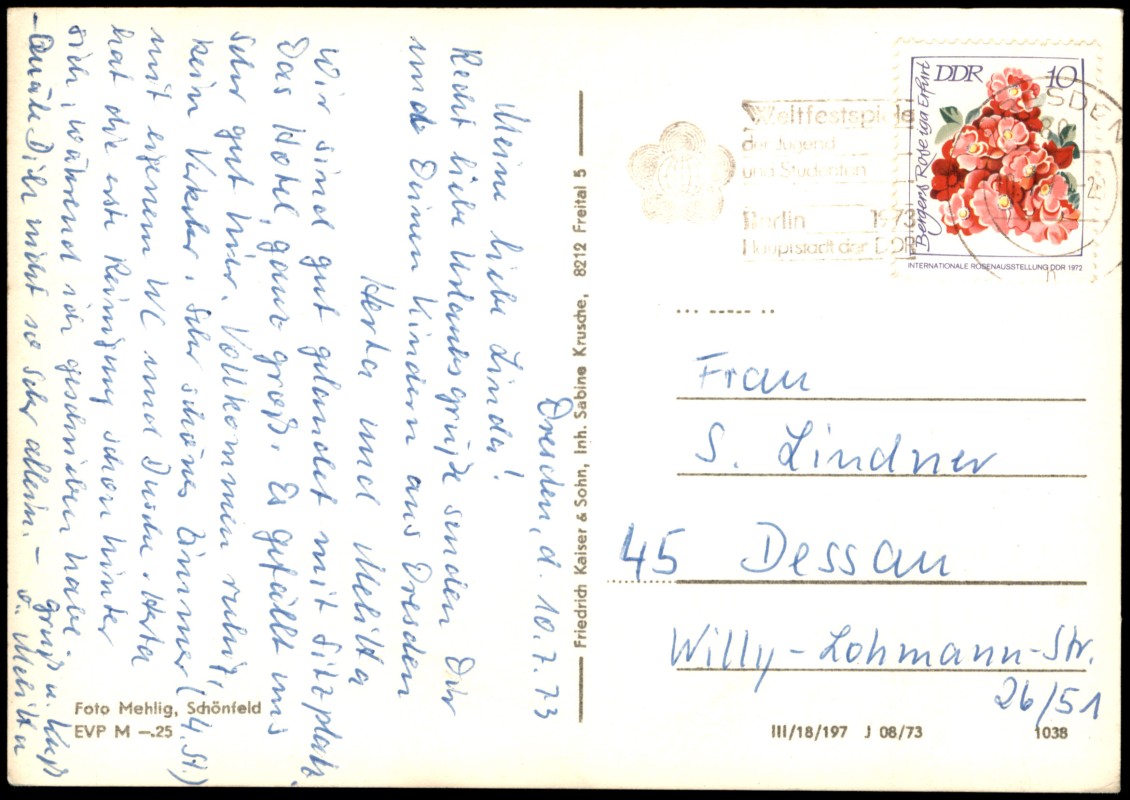 Dresden, d. 10.7.73
Meine liebe Linda!
Recht liebe Urlaubsgrüße senden Dir
und Deinen Kindern aus Dresden
Herta und Melitta
Wir sind gut gelandet mit Sitzplatz.
Das Hotel, ganz groß. Es gefällt uns
sehr gut hier. Vollkommen ruhig,
kein Verkehr. Sehr schönes Zimmer (4. St.)
mit eigenem WC und Dusche. Herta
hat die erste Reinigung schon hinter
sich, während ich geschrieben habe.
– Quäle Dich nicht so sehr allein. –
Gruß u. Kuß
Melitta
Foto Mehlig, Schönfeld
EVP M –.25
Friedrich Kaiser & Sohn, Inh. Sabine Krusche, 8212 Freital 5
Weltfestspiele
der Jugend
und Studenten
Berlin 1973
Hauptstadt der DDR
SDEN
DDR 10
Bergers Rose iga Erfurt
INTERNATIONALE ROSENAUSSTELLUNG DDR 1972
Frau
S. Lindner
45 Dessau
Willy-Lohmann-Str.
26/51
III/18/197 J 08/73
1038